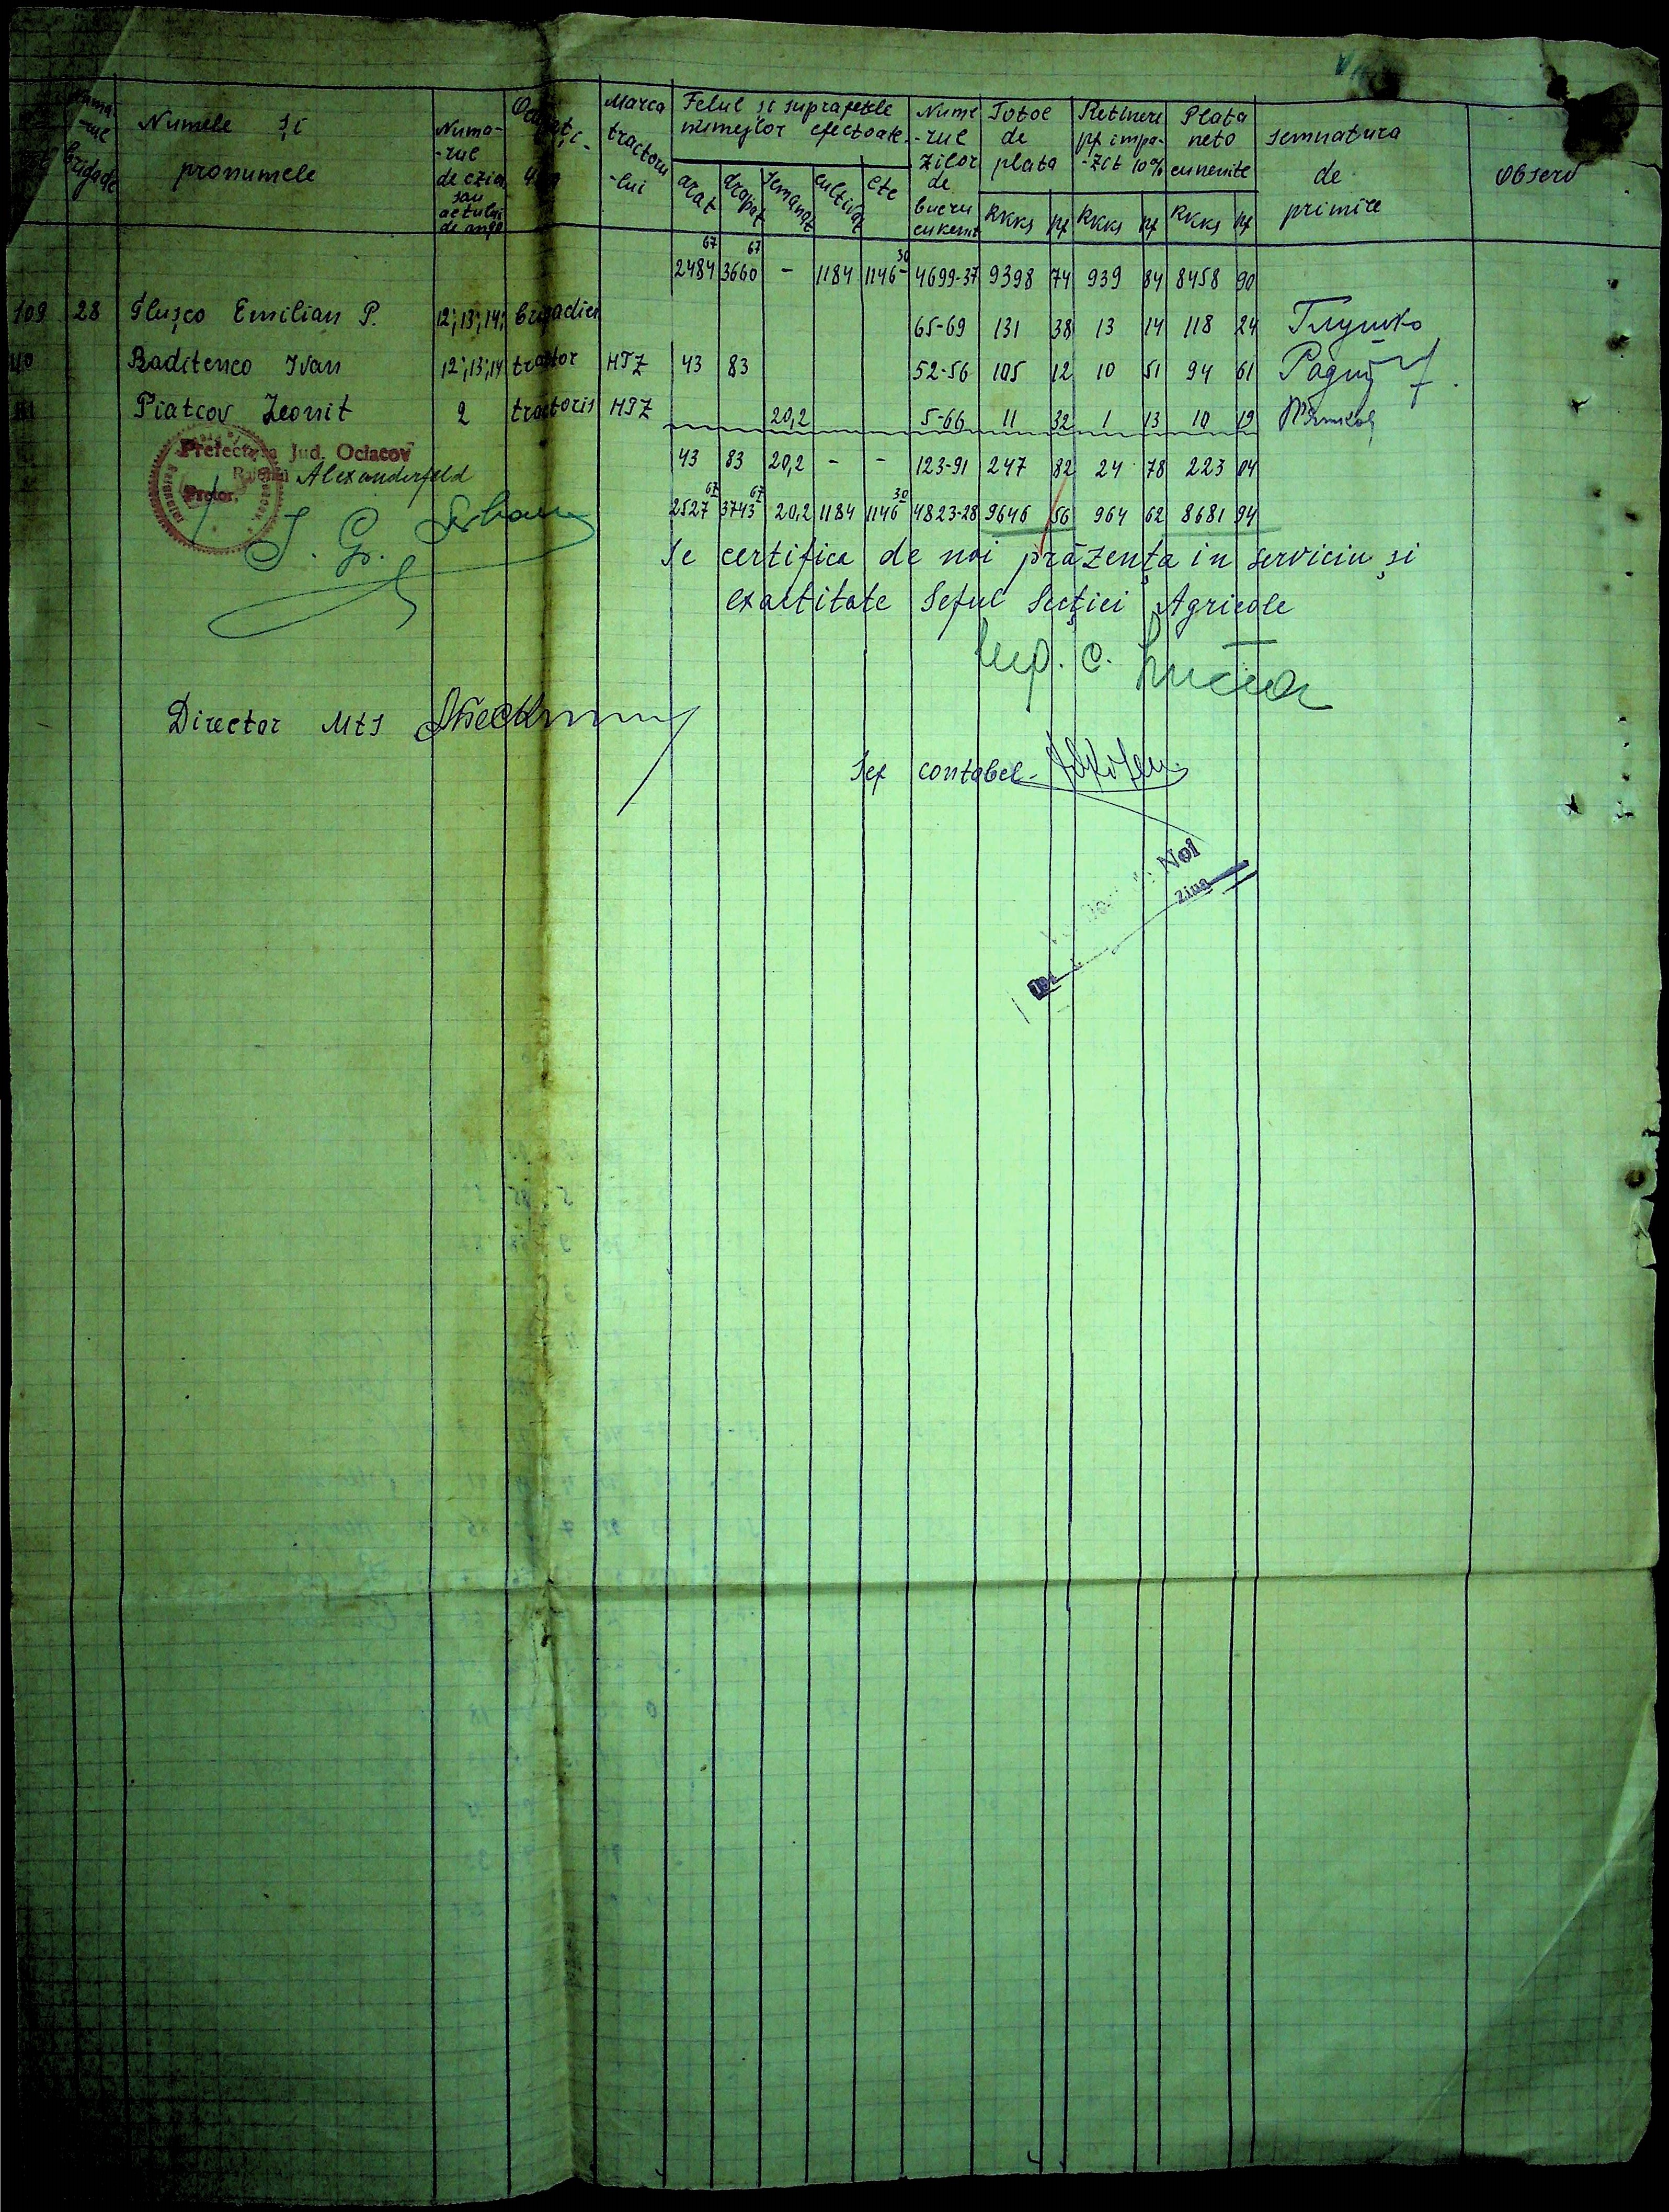 Numele și pronumele
Numa-
-rul
de czia
sau
actului
de anga
Marca
tractoru
-lui
Felul și suprafețele
numejlor efectoate
arat drapat semanat cultivat etc
Nume
-rul
zilor
de
lucru
Totoe
de
plata
RKKS pf
Retinere
pf impo-
-zit 10%
RKKS pf
Plata
neto
cunenite
RKKS pf
semnatura
de
primire
Observ
2484 67 3660 67 - 1184 1146 30 4699-37 9398 74 939 84 8458 90
109 28 Glușco Emilian P. 12;13;14; brigadier 65-69 131 38 13 14 118 24 Глушко
110 Baditenco Ivan 12;13;14 tractor HTZ 43 83 52-56 105 12 10 51 94 61
Piatcov Leonit 2 tractoris HTZ 20,2 5-66 11 32 1 13 10 19
43 83 20,2 - - 123-91 247 82 24 78 223 04
2527 67 3743 67 20,2 1184 1146 30 4823-28 9646 56 964 62 8681 94
Prefectura Jud. Ociacov
Raionul Alexanderfeld
Pretor,
Se certifica de noi prăzența in serviciu și
exactitate Seful Secției Agricole
Ing. C.
Director MtS
Sef contabel-
Noi
Ziua
194